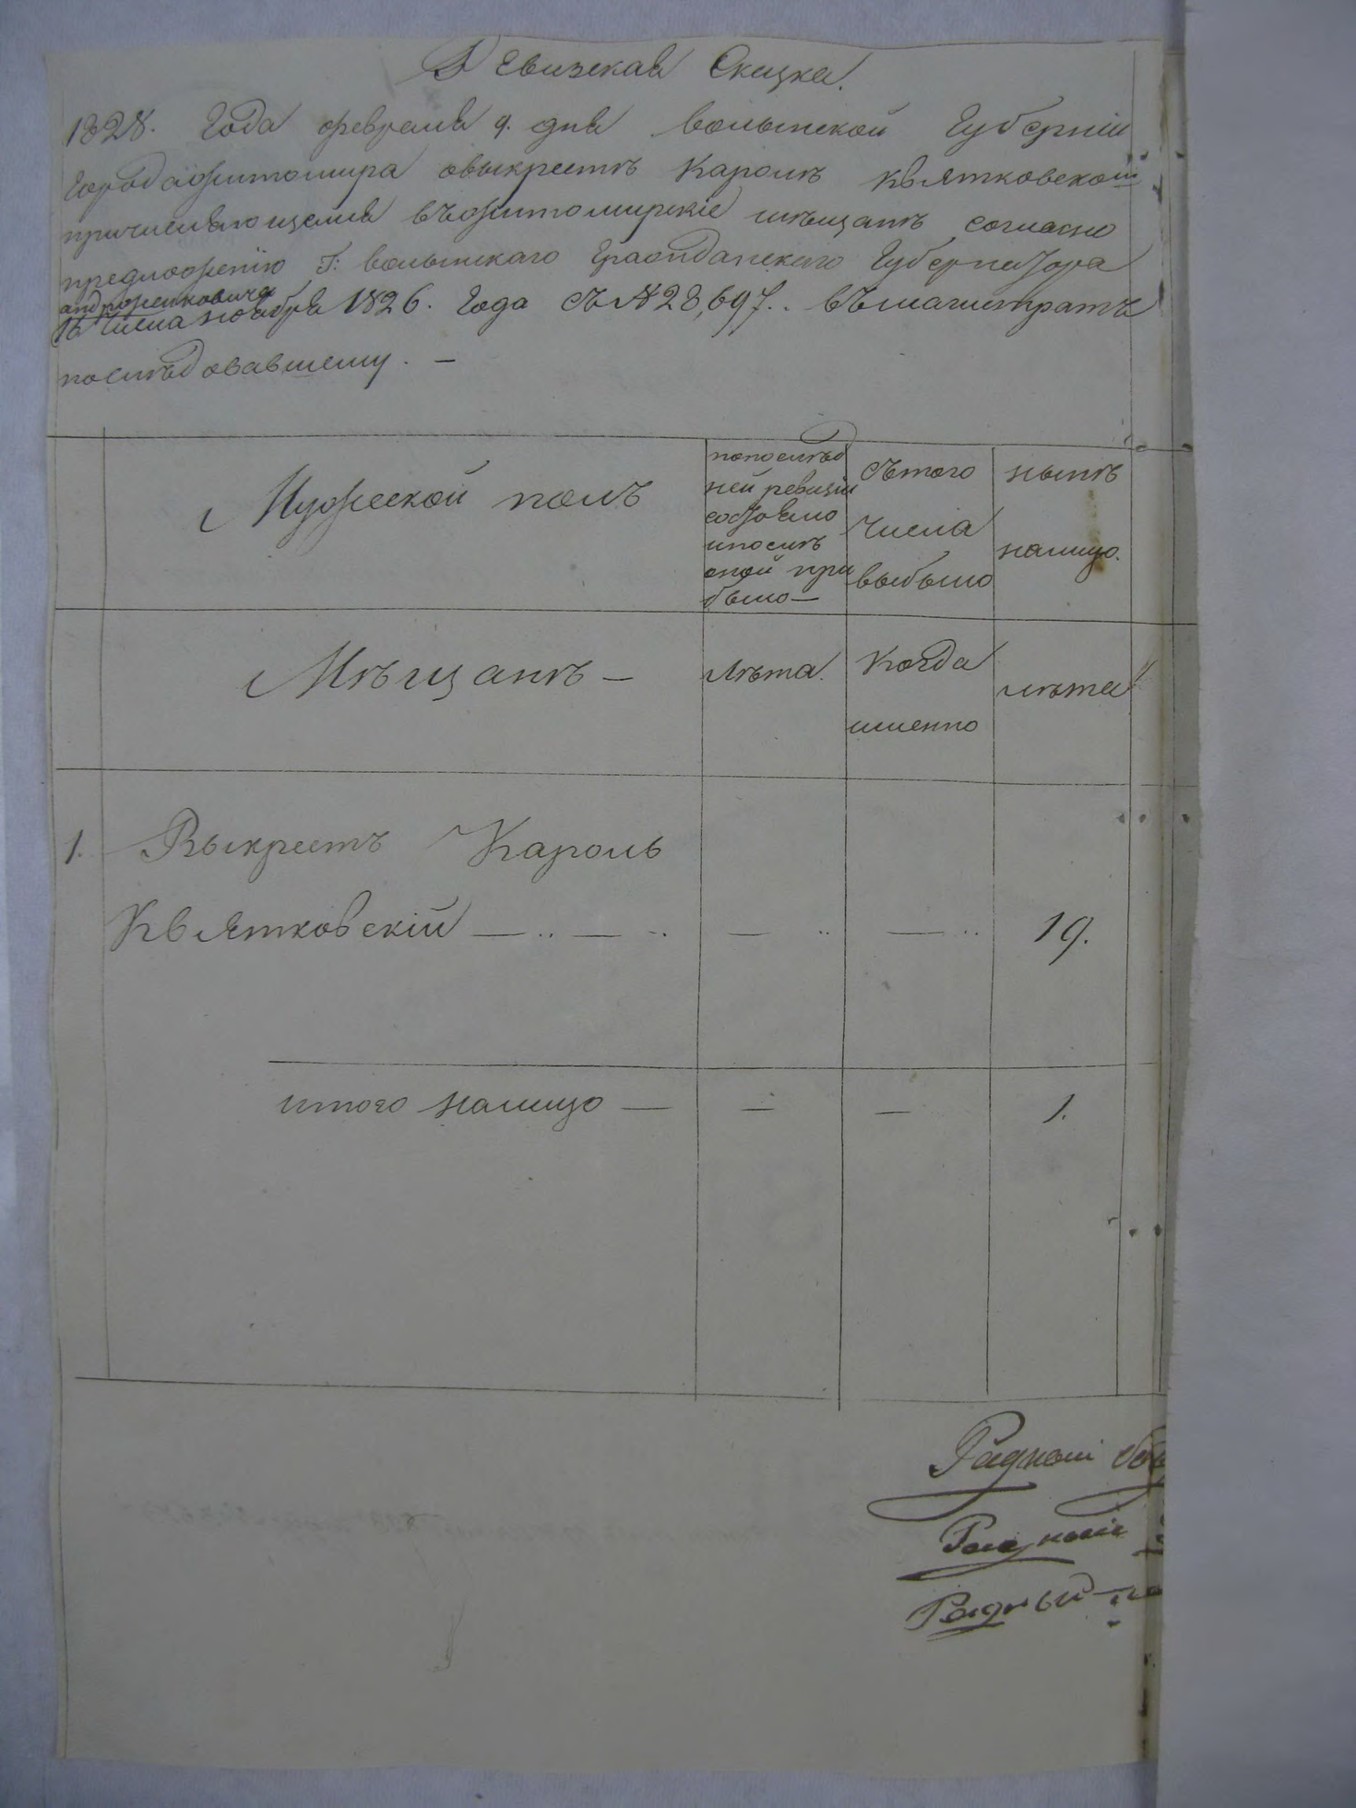 Ревизская Сказка.
1828. Года февраля 9. дня Волынской Губерніи
Города Житомира овыкресте Кароле Квятковском
причисляющемся въ Житомирскіе мещане согласно
предложенію Г: Волынскаго Гражданскаго Губернатора
андржейковича
16 числа ноября 1826. Года съ № 28,697. въ магистратъ
последовавшему. —
Мужеской полъ
попослѣд
ней ревизіи
состояло
ипослѣ
оной при
было —
съ того
числа
выбыло
нынѣ
налицо.
Мѣщанѣ —
лѣта.
когда
именно
лѣта
1. Выкрестъ Кароль
Квятковскій — .. — .. — .. — .. 19.
итого налицо — — — 1.
Ратманъ
Ратманъ